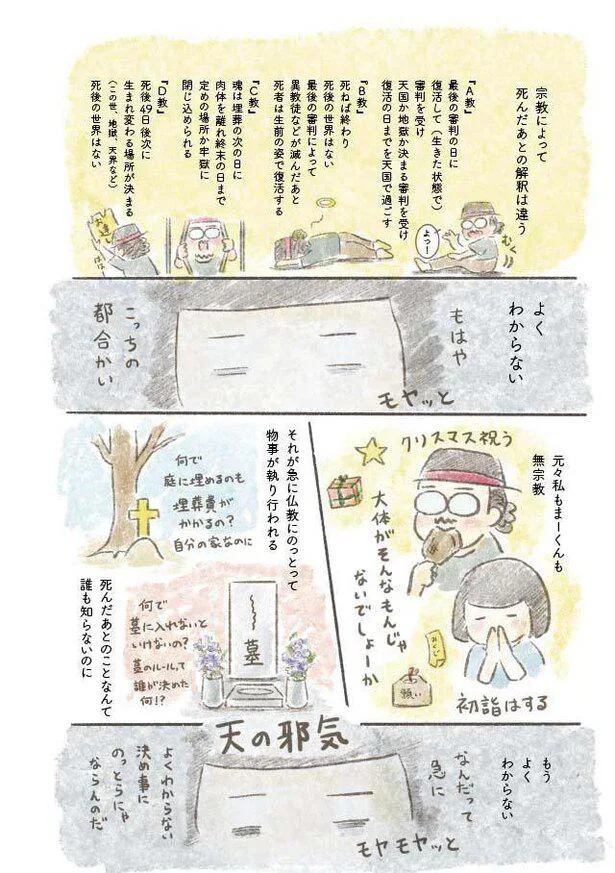 宗教によって
死んだあとの解釈は違う
『A教』
最後の審判の日に
復活して（生きた状態で）
審判を受け
天国か地獄か決まる審判を受け
復活の日までを天国で過ごす
『B教』
死ねば終わり
死後の世界はない
最後の審判によって
異教徒などが滅んだあと
死者は生前の姿で復活する
『C教』
魂は埋葬の次の日に
肉体を離れ終末の日まで
定めの場所か牢獄に
閉じ込められる
『D教』
死後49日後次に
生まれ変わる場所が決まる
（この世、地獄、天界など）
死後の世界はない
よっ！
むくっ
よく
わからない
もはや
こっちの
都合かい
モヤッと
元々私もまーくんも
無宗教
クリスマス祝う
大体がそんなもんじゃ
ないでしょーか
みくじ
願い
初詣はする
それが急に仏教にのっとって
物事が執り行われる
何で
庭に埋めるのも
埋葬費が
かかるの？
自分の家なのに
何で
墓に入れないと
いけないの？
墓のルールって
誰が決めた
何!?
墓
死んだあとのことなんて
誰も知らないのに
天の邪気
もう
よく
わからない
なんだって
急に
よくわからない
決め事に
のっとらにゃ
ならんのだ
モヤモヤッと